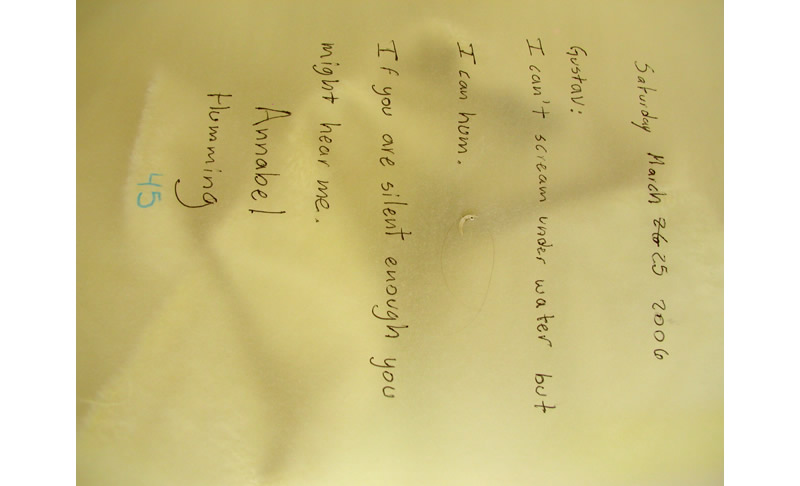 Saturday March 25 2006
Gustav:
I can't scream under water but
I can hum.
If you are silent enough you
might hear me.
Annabel
Humming
45